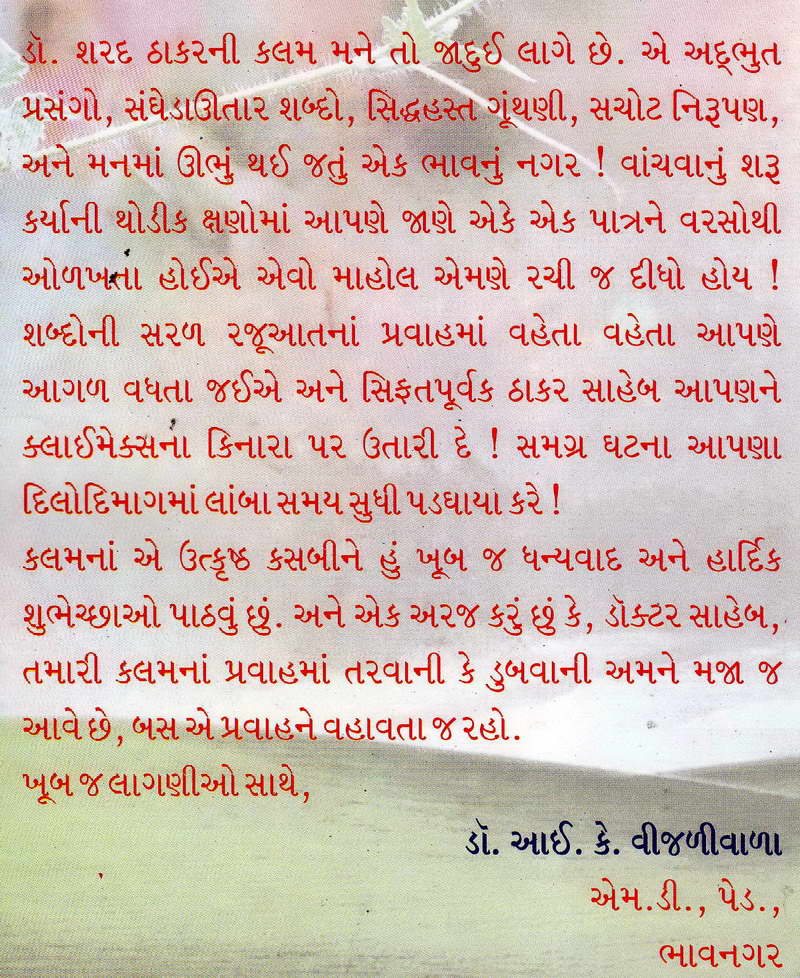 ડૉ. શરદ ઠાકરની કલમ મને તો જાદુઈ લાગે છે. એ અદ્ભુત
પ્રસંગો, સંઘેડાઊતાર શબ્દો, સિદ્ધહસ્ત ગૂંથણી, સચોટ નિરૂપણ,
અને મનમાં ઊભું થઈ જતું એક ભાવનું નગર ! વાંચવાનું શરૂ
કર્યાની થોડીક ક્ષણોમાં આપણે જાણે એકે એક પાત્રને વરસોથી
ઓળખતા હોઈએ એવો માહોલ એમણે રચી જ દીધો હોય !
શબ્દોની સરળ રજૂઆતનાં પ્રવાહમાં વહેતા વહેતા આપણે
આગળ વધતા જઈએ અને સિફતપૂર્વક ઠાકર સાહેબ આપણને
ક્લાઈમેક્સના કિનારા પર ઉતારી દે ! સમગ્ર ઘટના આપણા
દિલોદિમાગમાં લાંબા સમય સુધી પડઘાયા કરે !
કલમનાં એ ઉત્કૃષ્ઠ કસબીને હું ખૂબ જ ધન્યવાદ અને હાર્દિક
શુભેચ્છાઓ પાઠવું છું. અને એક અરજ કરું છું કે, ડૉક્ટર સાહેબ,
તમારી કલમનાં પ્રવાહમાં તરવાની કે ડુબવાની અમને મજા જ
આવે છે, બસ એ પ્રવાહને વહાવતા જ રહો.
ખૂબ જ લાગણીઓ સાથે,
ડૉ. આઈ. કે. વીજળીવાળા
એમ.ડી., પેડ.,
ભાવનગર